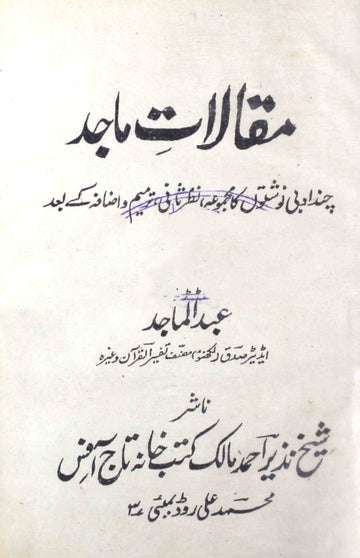 مقالاتِ ماجد
چند ادبی نوشتوں کا مجموعہ، نظرثانی، ترمیم و اضافہ کے بعد
عبدالماجد
ایڈیٹر صدق (لکھنؤ) مصنف تفسیر القرآن وغیرہ
ناشر
شیخ نذیر احمد مالک کتب خانہ تاج آفس
محمد علی روڈ بمبئی ۳